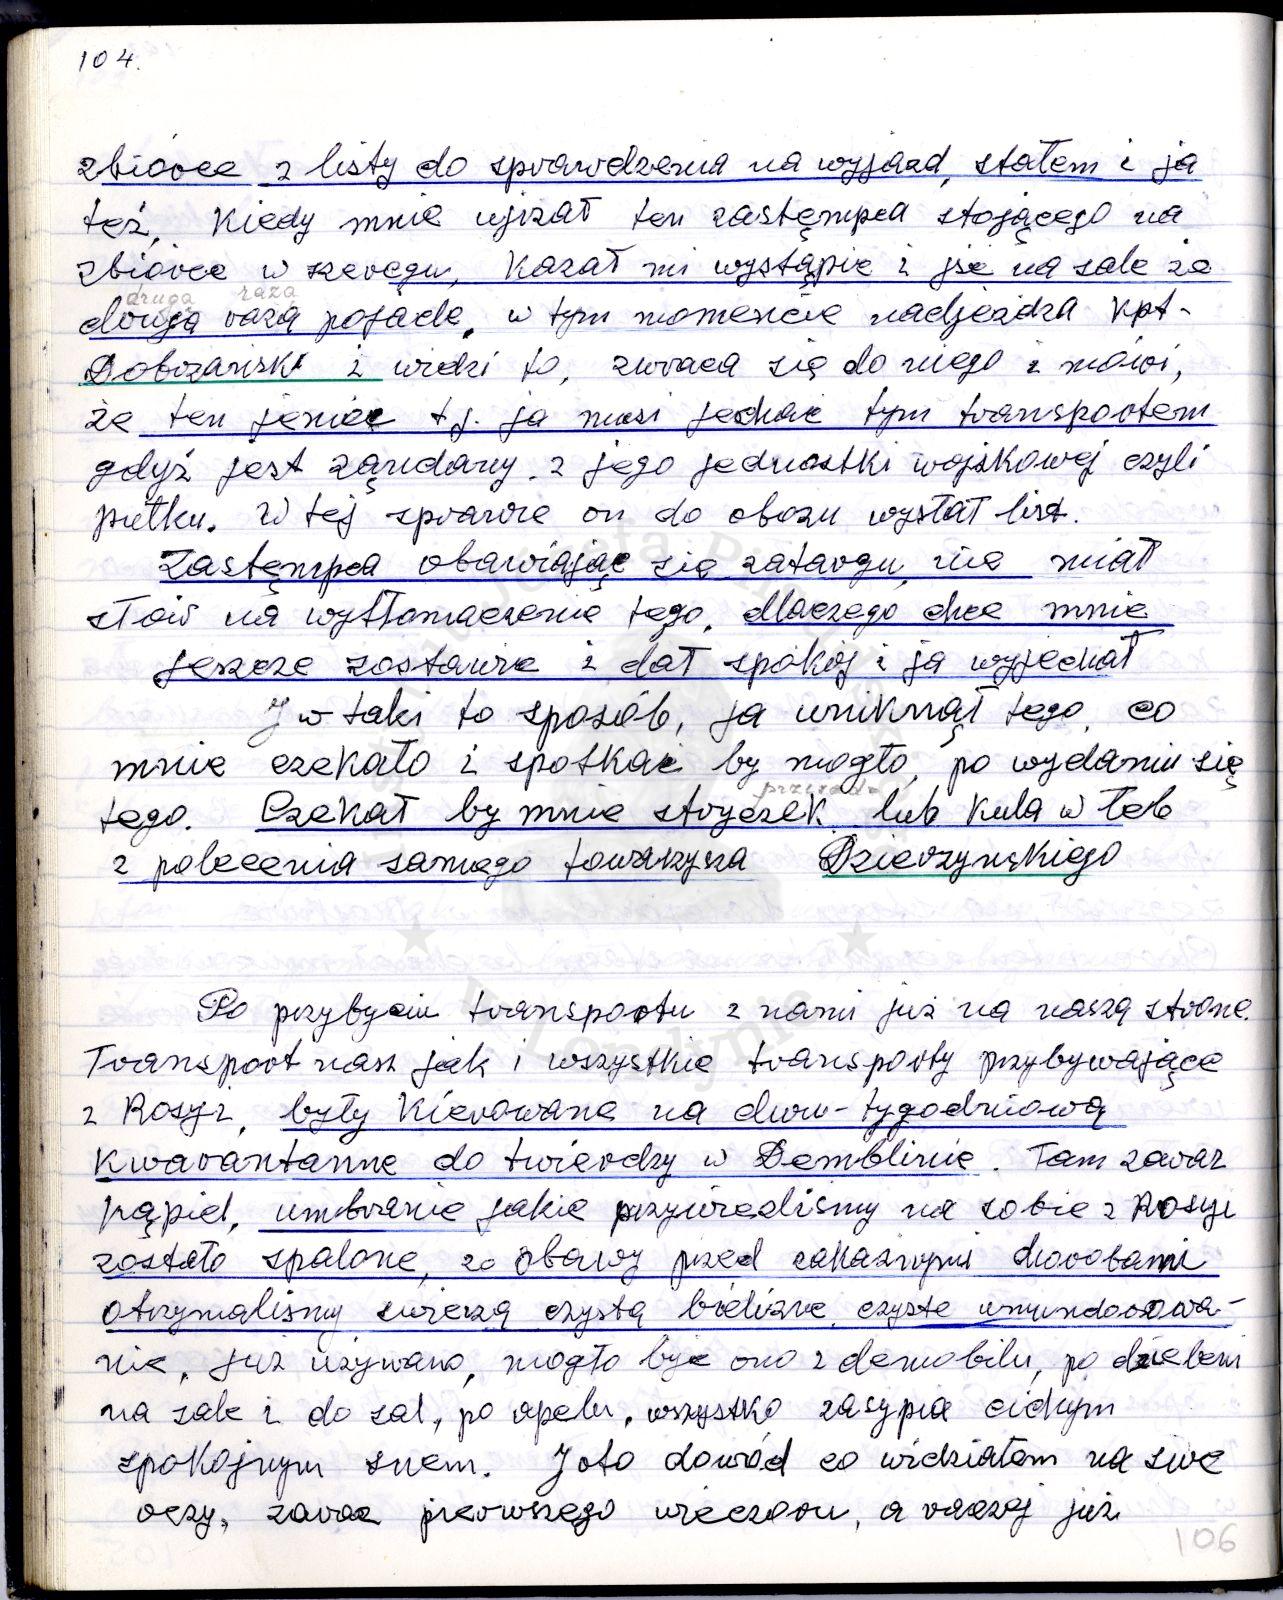 104.
zbiórce z listy do sprawdzenia na wyjazd, stałem i ja
też, Kiedy mnie ujrzał ten zastęmpca stojącego na
zbiórce w szeregu, Kazał mi wystąpić i jść na sale że
drugą razą
drugą razą pojadę, w tym momencie nadjeżdza Kpt-
Dobrzański i widzi to, zwraca się do niego i mówi,
że ten jeniec t.j. ja musi jechać tym transportem
gdyż jest żąndany z jego jednostki wojskowej czyli
pułku. W tej sprawie on do obozu wysłał list.
Zastęmpca obawiając się zatargu, nie miał
słów na wytłomaczenie tego, dlaczego chce mnie
jeszcze zostawic i dał spokój i ja wyjechał
I w taki to sposób, ja uniknął tego, co
mnie czekało i spotkać by mogło, po wydaniu się
tego. Czekał by mnie stryczek lub Kula w łeb
z polecenia samego towarzysza Dzierzynskiego
Po przybyciu transportu z nami już na naszą strone.
Transport nasz jak i wszystkie transporty przybywające
z Rosyi, były Kierowane na dwu-tygodniową
Kwarantanne do twierdzy w Demblinie. Tam zaraz
kąpiel, umbranie jakie przywiezlismy na sobie z Rosyi
zostało spalone, z obawy przed zakaznymi chorobami
otrzymalismy swierzą czystą bielizne, czyste umundorowa-
nie, już używano, mogło być ono z demobilu, po
na sale i do sal, po apelu, wszystko zasypia cichym
spokojnym snem. I oto dowód co widziałem na swe
oczy, zaraz pierwszego wieczoru, a raczej już
106
Józefa Piłsudskiego
w Londynie